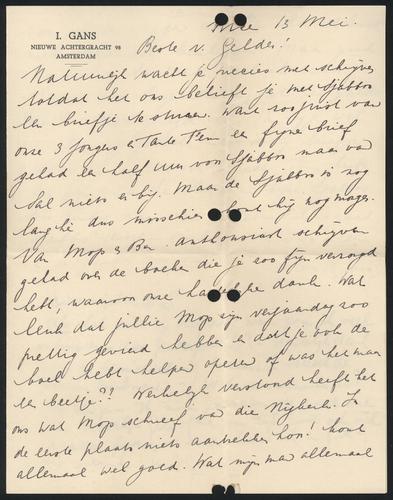 I. GANS
NIEUWE ACHTERGRACHT 98
AMSTERDAM
13 Mei.
Beste v. Gelder!
Natuurlijk wacht je precies met schrijven
totdat het ons belieft je met Sjabbos
een briefje te sturen. Want zoo juist van
onze 3 jongens en Tante Fem een fijne brief
gehad een half uur voor Sjabbos maar van
Sal niets er bij. Maar de Sjabbos is nog
lang hè dus misschien komt hij nog morgen.
Van Mop en Ben enthousiast schrijven
gehad over de boeken die je zoo fijn verzorgd
hebt, waarvoor onze hartelijke dank. Wat
leuk dat jullie Mop zijn verjaardag zoo
prettig gevierd hebben en dat je ook de
boel hebt helpen opeten of was het maar
een beetje?? Werkelijk verstomd heeft het
ons wat Mop schreef van die Nijkerk. In
de eerste plaats niets aantrekken hoor! komt
allemaal wel goed. Wat zijn me allemaal